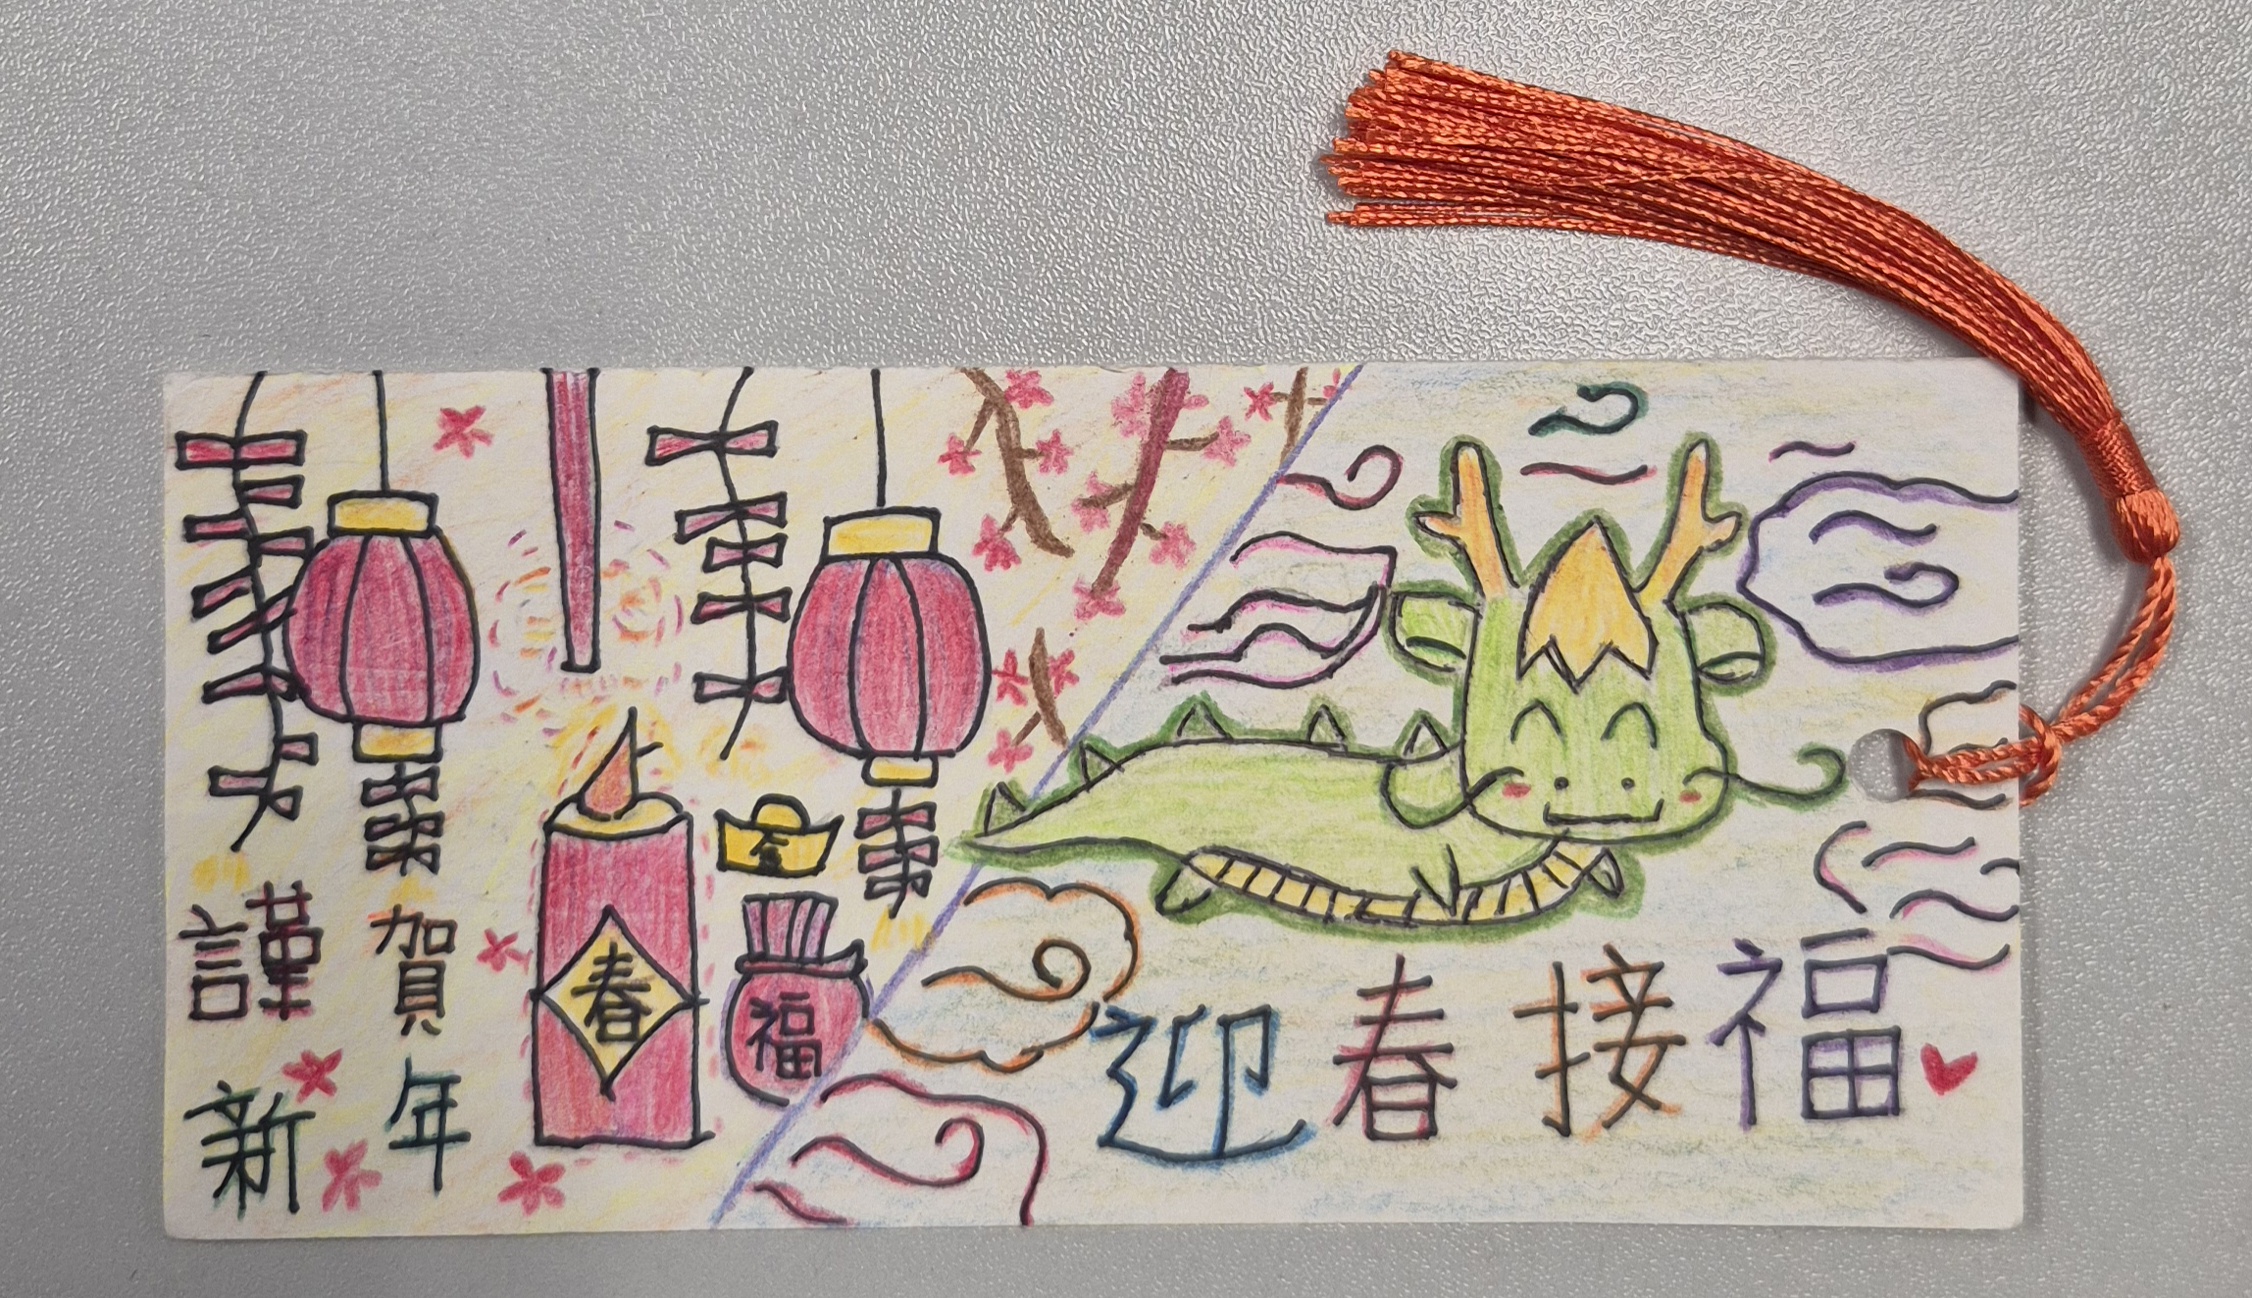 謹賀
新年
春
金
福
迎春接福